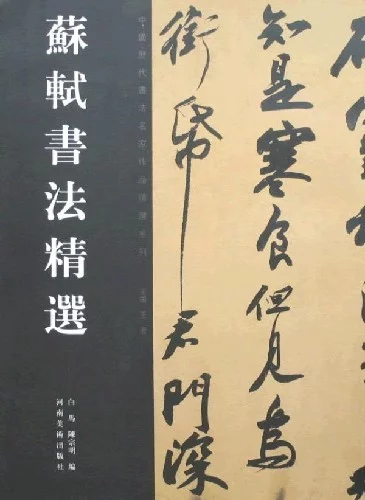 蘇軾書法精選
中國歷代書法名家作品精選系列
白馬 陳宗明 編
河南美術出版社
知是寒食但見烏
銜帋君門深